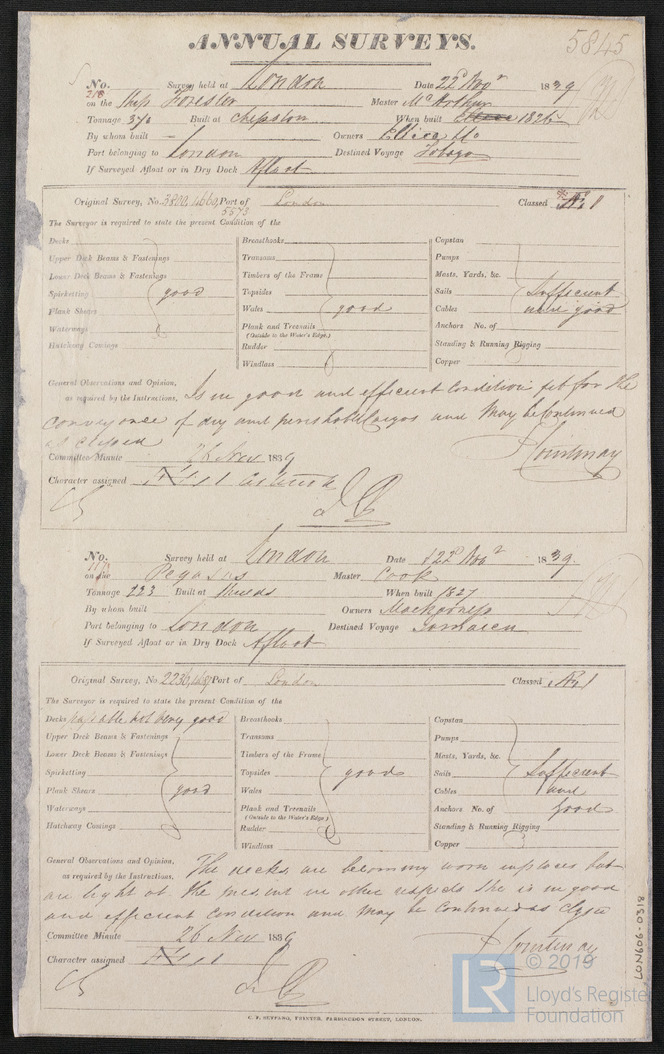 ANNUAL SURVEYS.
5845
No. 218 Survey held at London Date 22d Novr 1839
on the Ship Forester Master McArthur
Tonnage 370 Built at Chepstow When built 1826
By whom built — Owners Ellice &Co
Port belonging to London Destined Voyage Tobago
If Surveyed Afloat or in Dry Dock Afloat
Original Survey, No. 3800, 4660, Port of London Classed A1
5573
The Surveyor is required to state the present Condition of the
Decks Breasthooks Capstan
Upper Deck Beams & Fastenings Transoms Pumps
Lower Deck Beams & Fastenings Timbers of the Frame Masts, Yards, &c.
Spirketting good Topsides Sails Sufficient
Plank Shears Wales good Cables and good
Waterways Plank and Treenails Anchors No. of
(Outside to the Water's Edge.)
Hatchway Comings Rudder Standing & Running Rigging
Windlass Copper
General Observations and Opinion,
as required by the Instructions. Is in good and efficient Condition fit for the
conveyance of dry and perishable Cargos and may be Continued
as classed
P Courtenay
Committee Minute 26 Nov 1839
Character assigned A1
No. Survey held at London Date 22d Novr 1839.
on the Pegasus Master Cook
Tonnage 223 Built at When built 1827
By whom built Owners
Port belonging to London Destined Voyage Jamaica
If Surveyed Afloat or in Dry Dock Afloat
Original Survey, No 2236, Port of London Classed A1
The Surveyor is required to state the present Condition of the
Decks passable not very good Breasthooks Capstan
Upper Deck Beams & Fastenings Transoms Pumps
Lower Deck Beams & Fastenings Timbers of the Frame Masts, Yards, &c.
Spirketting Topsides good Sails Sufficient
Plank Shears good Wales Cables and
Waterways Plank and Treenails Anchors No. of Good
(Outside to the Water's Edge.)
Hatchway Comings Rudder Standing & Running Rigging
Windlass Copper
General Observations and Opinion,
as required by the Instructions. The decks are becoming worn in places but
are tight at the present in other respects She is in good
and efficient condition and may be continued as Classed
Committee Minute 26 Nov 1839
P Courtenay
Character assigned A1
C. F. SEYFANG, PRINTER, FARRINGDON STREET, LONDON.
LON606-0318
LR © 2019
Lloyd's Register
Foundation